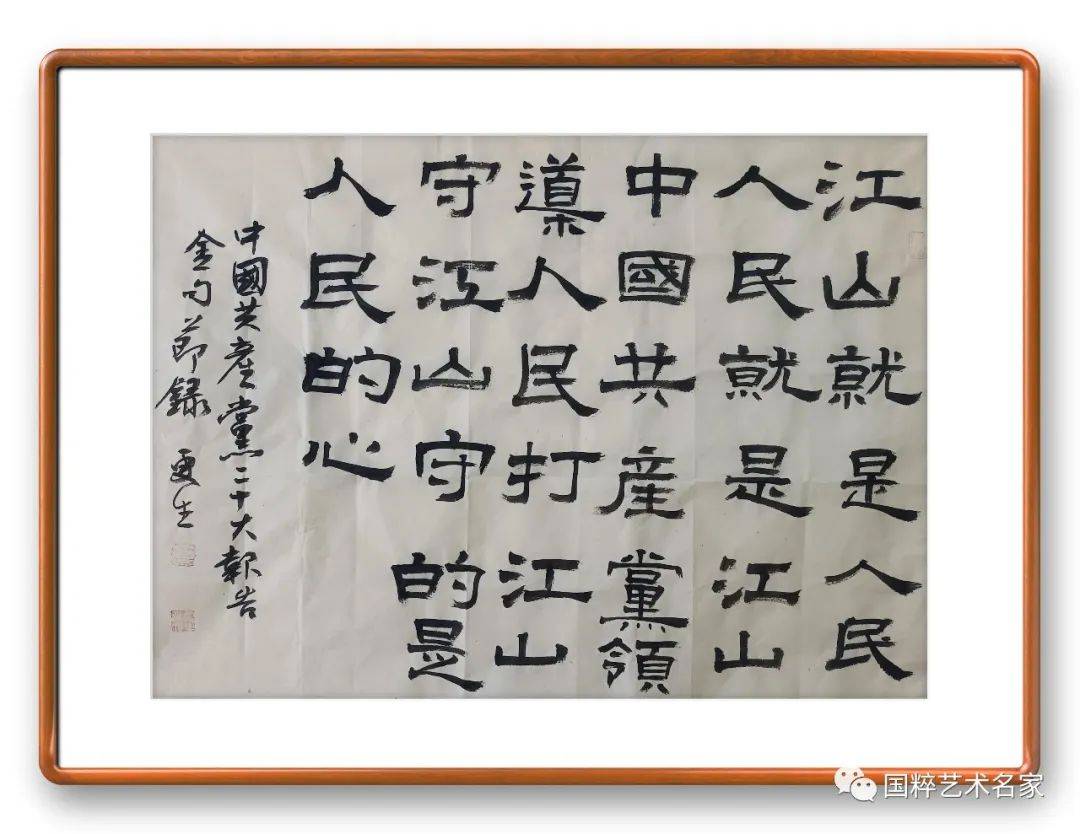 江山就是人民
人民就是江山
中國共産黨領
導人民打江山
守江山守的是
人民的心
中國共産黨二十大報告
金句節録 更生
国粹艺术名家